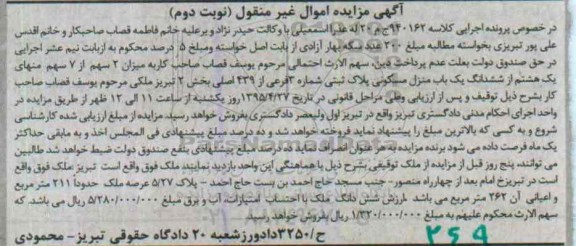 آگهی مزایده اموال غیر منقول (نوبت دوم)
در خصوص پرونده اجرایی کلاسه ۹۴۰۱۶۲ج م ۲۰ له عذرا اسمعیلی با وکالت حیدر نژاد و برعلیه خانم فاطمه قصاب صاحبکار و خانم اقدس
علی پور تبریزی بخواسته مطالبه مبلغ ۳۰۰ عدد سکه بهار آزادی از بابت اصل خواسته ومبلغ ۵ درصد محکوم به ازبابت نیم عشر اجرایی
در حق صندوق دولت بعلت عدم پرداخت دین، سهم الارث احتمالی مرحوم یوسف قصاب صاحب کاربه میزان ۲ سهم از ۷ سهم منهای
یک هشتم از ششدانگ یک باب منزل مسکونی پلاک ثبتی شماره ۳فرعی از ۴۳۹ اصلی بخش ۲ تبریز ملکی مرحوم یوسف قصاب صاحب
کار بشرح ذیل توقیف و پس از ارزیابی وطی مراحل قانونی در تاریخ ۱۳۹۵/۴/۲۷روز یکشنبه از ساعت ۱۱ الی ۱۲ ظهر از طریق مزایده در
واحد اجرای احکام مدنی دادگستری تبریز واقع در تبریز اول ولیعصر دادگستری بفروش خواهد رسید، مزایده از مبلغ ارزیابی شده کارشناسی
شروع و به کسی که بالاترین مبلغ را پیشنهاد نماید فروخته خواهد شد و ده درصد مبلغ پیشنهادی فی المجلس اخذ و به مابقی حداکثر
یک ماه فرصت داده می شود برنده مزایده به هر عنوان انصراف نماید ده درصد مبلغ پیشنهادی بنفع صندوق دولت ضبط خواهد شد طالبین
می توانند، پنج روز قبل از مزایده از ملک توقیفی بشرح ذیل با هماهنگی این واحد بازدید نمایند ملک فوق واقع است تبریز ملک فوق واقع
است در تبریزخ امام بعد از چهارراه منصور- جنب مسجد حاج احمد بن بست حاج احمد – پلاک ۵/۲۷ عرصه ملک حدوداً ۲۱۱ متر مربع
و اعیانی آن ۲۶۲ متر مربع می باشد ارزش شش دانگ ملک با احتساب امتیازات، آب و برق مبلغ ۵/۲۸۰/۰۰۰/۰۰۰ ریال می باشد. که
سهم الارث محکوم علیهم به مبلغ ۱/۳۲۰/۰۰۰/۰۰۰ ریال بفروش خواهد رسید
ح/۳۲۵۰دادورزشعبه ۲۰ دادگاه حقوقی تبریز- محمودی
۲۶۹